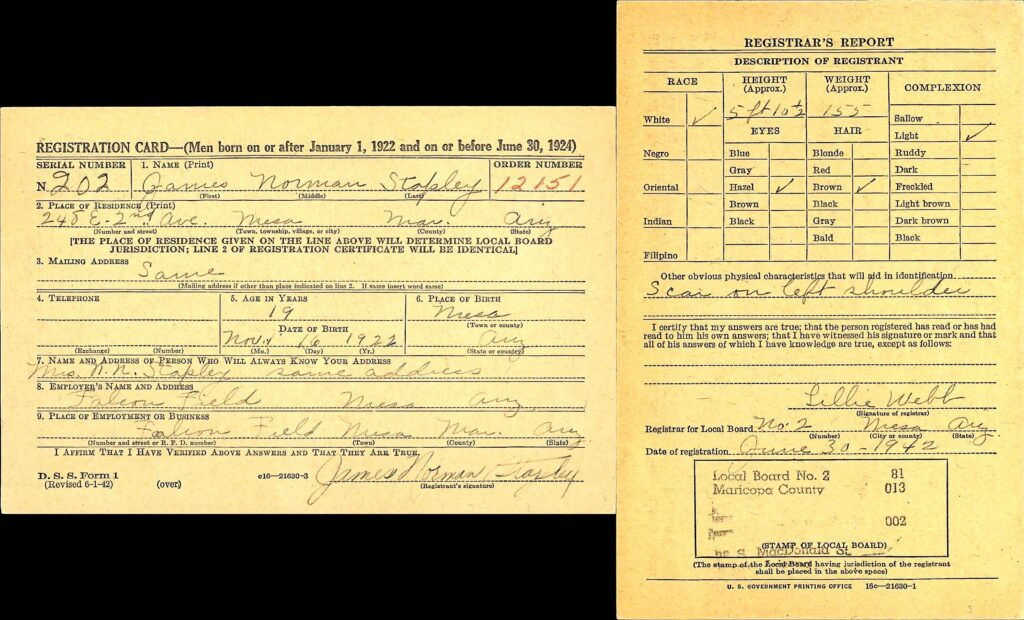 REGISTRATION CARD—(Men born on or after January 1, 1922 and on or before June 30, 1924)
SERIAL NUMBER 1. NAME (Print) ORDER NUMBER
N. 202 James Norman Stapley 12151
(First) (Middle) (Last)
2. PLACE OF RESIDENCE (Print)
248 E. 2nd Ave. Mesa Mar. Ariz
(Number and street) (Town, township, village, or city) (County) (State)
[THE PLACE OF RESIDENCE GIVEN ON THE LINE ABOVE WILL DETERMINE LOCAL BOARD
JURISDICTION; LINE 2 OF REGISTRATION CERTIFICATE WILL BE IDENTICAL]
3. MAILING ADDRESS
Same
(Mailing address if other than place indicated on line 2. If same insert word same)
4. TELEPHONE 5. AGE IN YEARS 6. PLACE OF BIRTH
19 Mesa
DATE OF BIRTH (Town or county)
Nov. 16 1922 Ariz
(Exchange) (Number) (Mo.) (Day) (Yr.) (State or country)
7. NAME AND ADDRESS OF PERSON WHO WILL ALWAYS KNOW YOUR ADDRESS
Mrs. N. N. Stapley same address
8. EMPLOYER'S NAME AND ADDRESS
Falcon Field Mesa Ariz.
9. PLACE OF EMPLOYMENT OR BUSINESS
Falcon Field Mesa Mar. Ariz
(Number and street or R. F. D. number) (Town) (County) (State)
I AFFIRM THAT I HAVE VERIFIED ABOVE ANSWERS AND THAT THEY ARE TRUE.
D. S. S. Form 1
(Revised 6-1-42) (over) 16—21630-3 James Norman Stapley
(Registrant's signature)
REGISTRAR'S REPORT
DESCRIPTION OF REGISTRANT
RACE HEIGHT (Approx.) WEIGHT (Approx.) COMPLEXION
White ✓ 5 ft 10 ½ 155 Sallow
EYES HAIR Light ✓
Negro Blue Blonde Ruddy
Gray Red Dark
Oriental Hazel ✓ Brown ✓ Freckled
Brown Black Light brown
Indian Black Gray Dark brown
Bald Black
Filipino
Other obvious physical characteristics that will aid in identification
Scar on left shoulder
I certify that my answers are true; that the person registered has read or has had
read to him his own answers; that I have witnessed his signature or mark and that
all of his answers of which I have knowledge are true, except as follows:
Lillie Webb
(Signature of registrar)
Registrar for Local Board No. 2 Mesa Ariz
(Number) (City or county) (State)
Date of registration June 30 - 1942
Local Board No. 2 81
Maricopa County 013
002
(STAMP OF LOCAL BOARD)
S. MacDonald St.
(The stamp of the Local Board having jurisdiction of the registrant
shall be placed in the above space)
U. S. GOVERNMENT PRINTING OFFICE 16c—21630-1